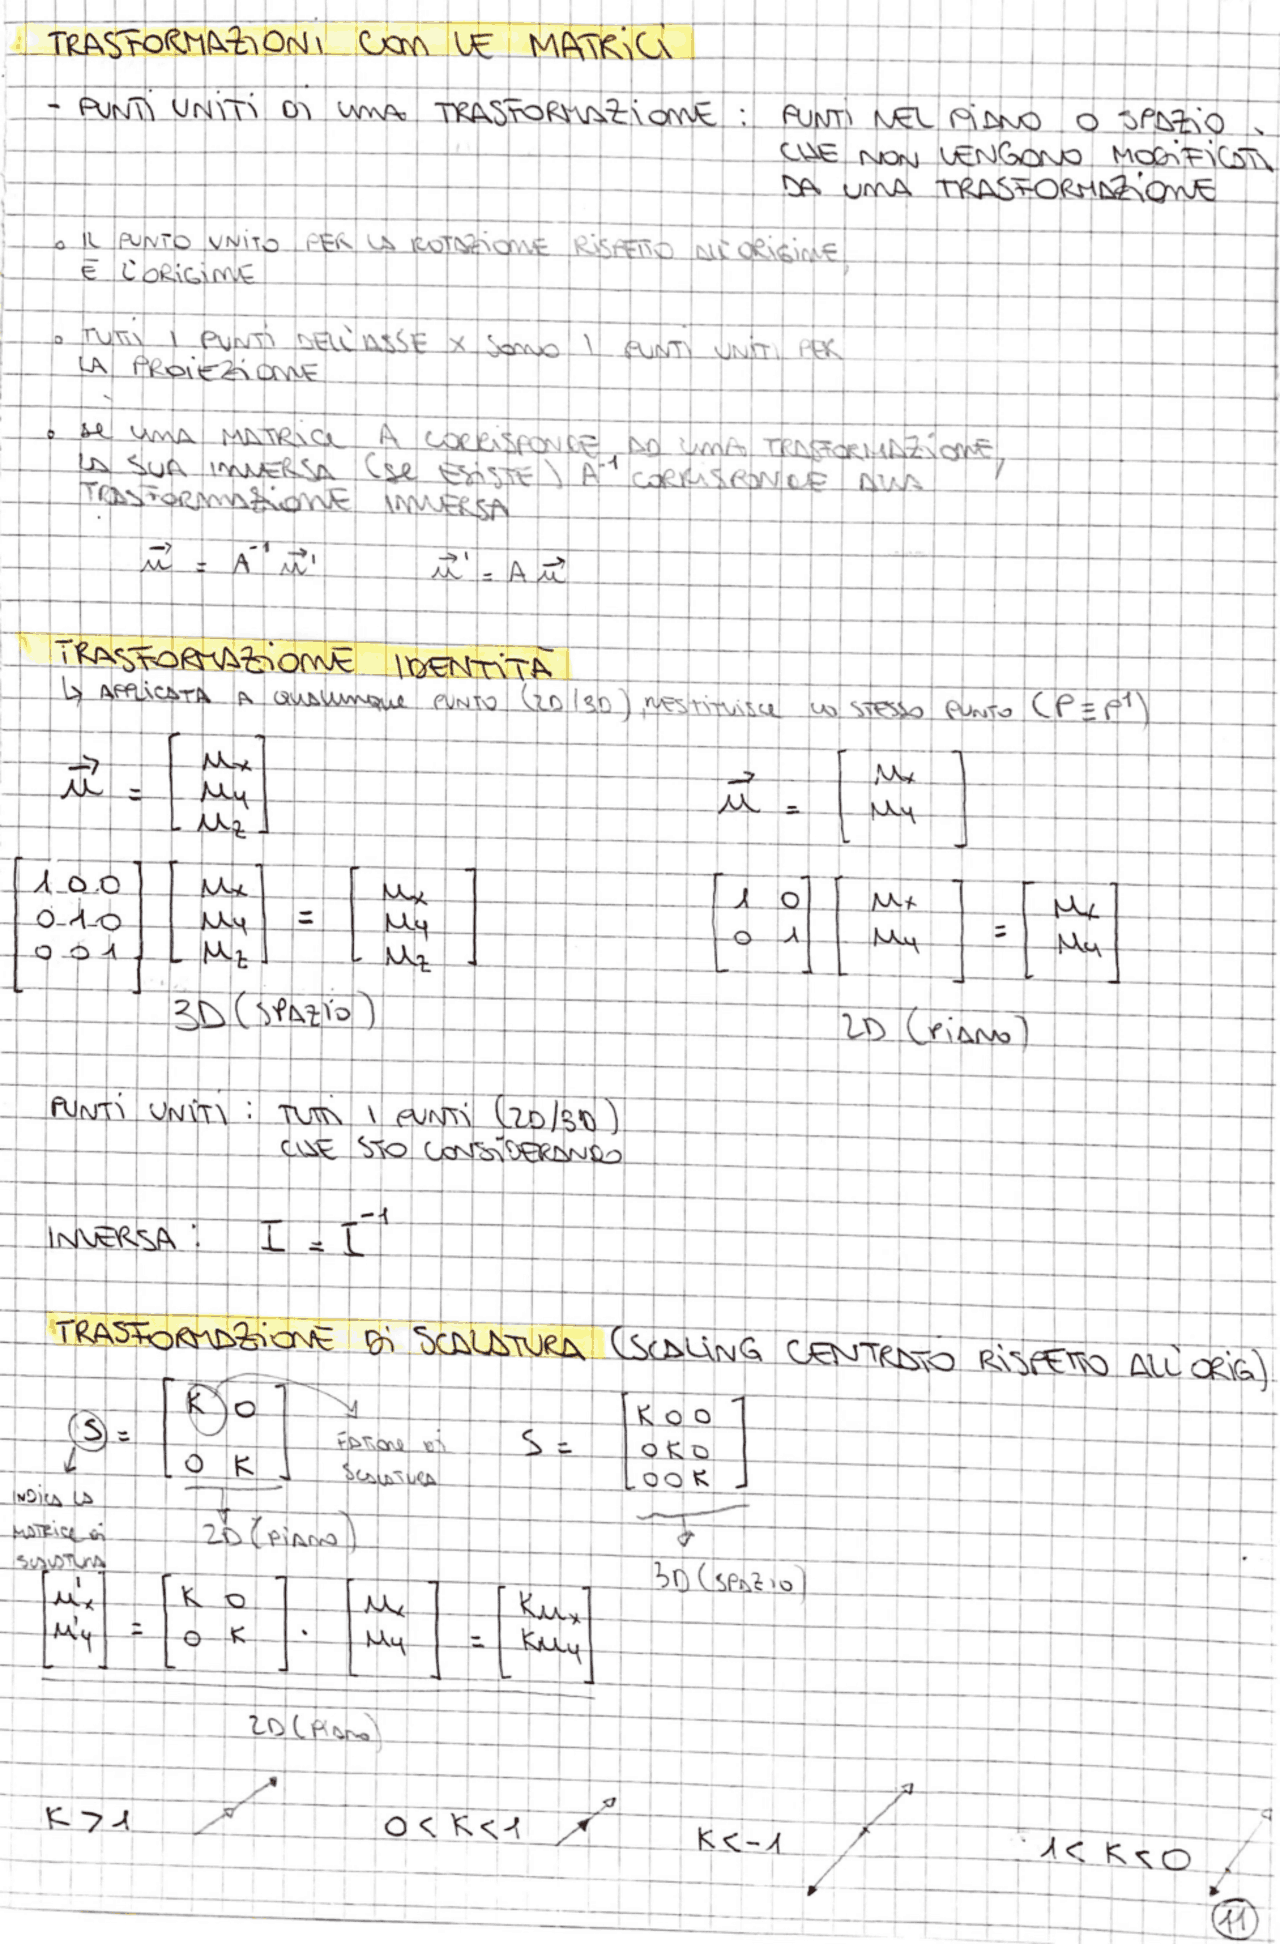 TRASFORMAZIONI con LE MATRICI
- PUNTI UNITI DI UMA TRASFORMAZIONE : PUNTI NEL PIANO O SPAZIO
CHE NON VENGONO MODIFICATI
DA UMA TRASFORMAZIONE
o IL PUNTO UNITO PER LA ROTAZIONE RISPETTO ALL'ORIGINE,
È L'ORIGINE
o TUTTI I PUNTI DELL'ASSE X SONO I PUNTI UNITI PER
LA PROIEZIONE
o SE UMA MATRICE A CORRISPONDE AD UMA TRASFORMAZIONE,
LA SUA INVERSA (SE ESISTE) A⁻¹ CORRISPONDE ALLA
TRASFORMAZIONE INVERSA
u⃗ = A⁻¹ u⃗' u⃗' = A u⃗
TRASFORMAZIONE IDENTITÀ
↳ APPLICATA A QUALUNQUE PUNTO (2D/3D), RESTITUISCE LO STESSO PUNTO (P≡P¹)
u⃗ = [ux uy uz] u⃗ = [ux uy]
[1 0 0 / 0 1 0 / 0 0 1] [ux uy uz] = [ux uy uz] [1 0 / 0 1] [ux uy] = [ux uy]
3D (SPAZIO) 2D (PIANO)
PUNTI UNITI : TUTTI I PUNTI (2D/3D)
CHE STO CONSIDERANDO
INVERSA : I = I⁻¹
TRASFORMAZIONE DI SCALATURA (SCALING CENTRATO RISPETTO ALL'ORIG)
S = [K 0 / 0 K] FATTORE DI SCALATURA S = [K 0 0 / 0 K 0 / 0 0 K]
INDICA LA
MATRICE DI
SCALATURA
2D (PIANO) 3D (SPAZIO)
[u'x u'y] = [K 0 / 0 K] · [ux uy] = [Kux Kuy]
2D (PIANO)
K > 1 0 < K < 1 K < -1 1 < K < 0
11